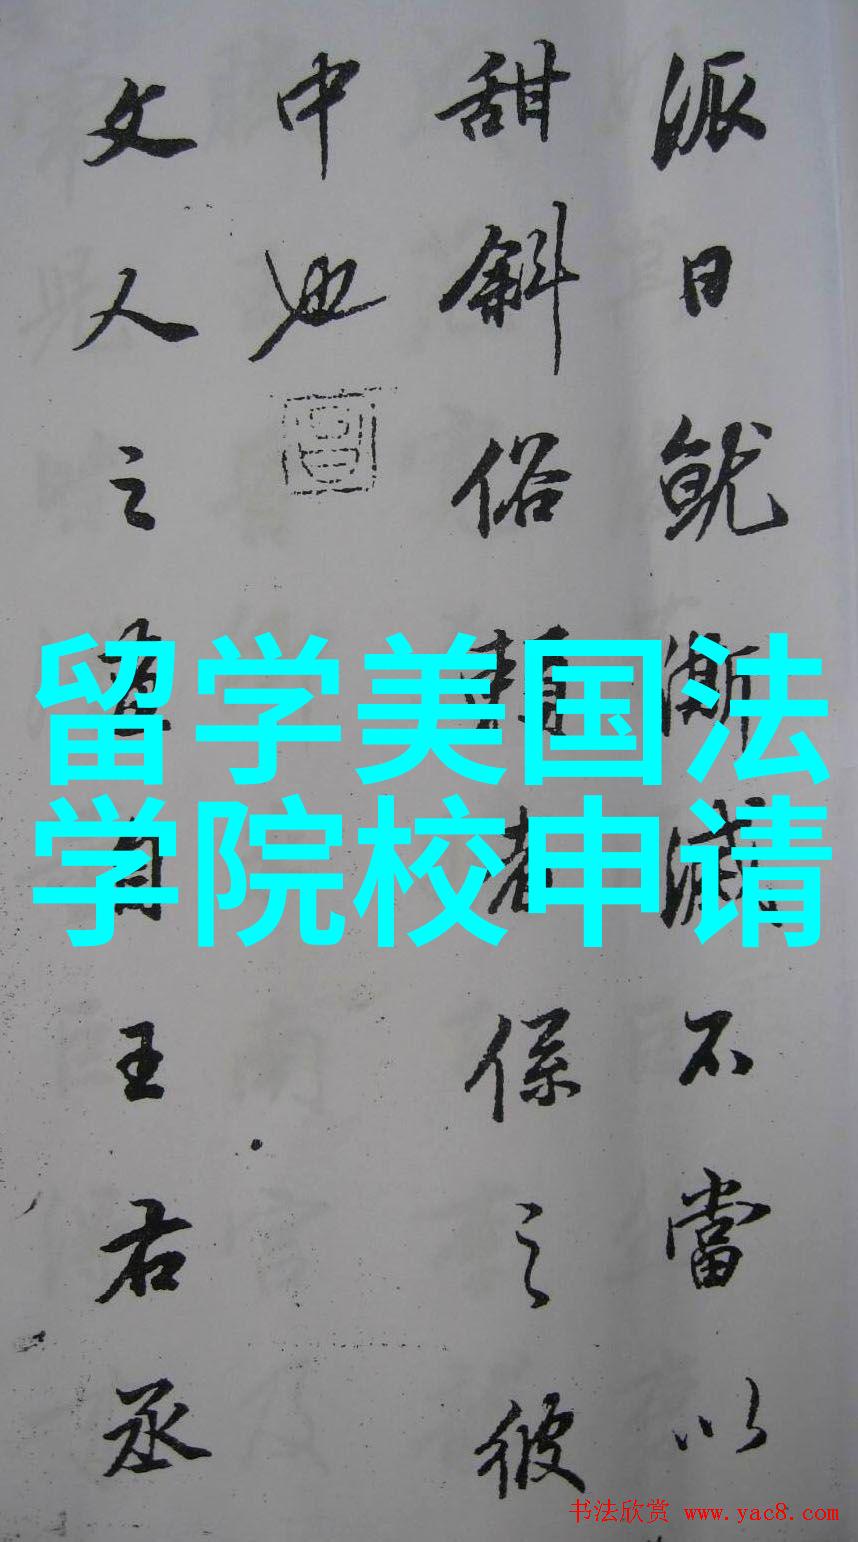 派日就澌滅不當以
甜斜俗賴者係之彼
中也
文人之畫自王右丞
留学美国法
学院校申请
书法欣赏 www.yac8.com